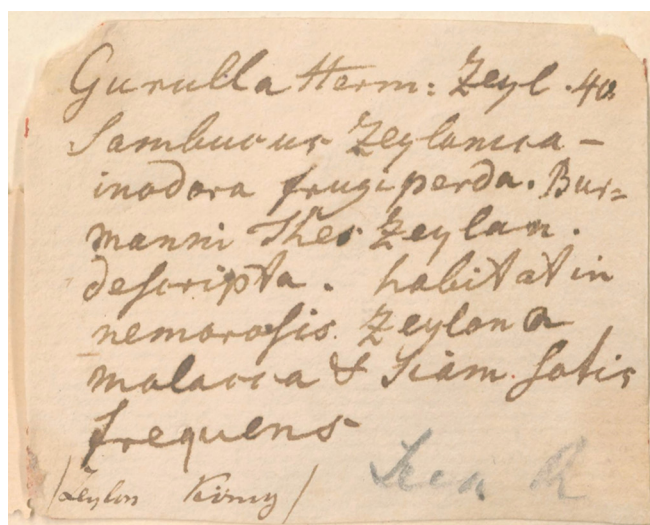 Gurulla Herm: Zeyl. 40
Sambucus Zeylanica -
inodora frugiperda. Bur=
manni Thes Zeylan.
descripta. habitat in
nemorosis Zeylona
malacca & Siam. satis
frequens
/Zeylon König/